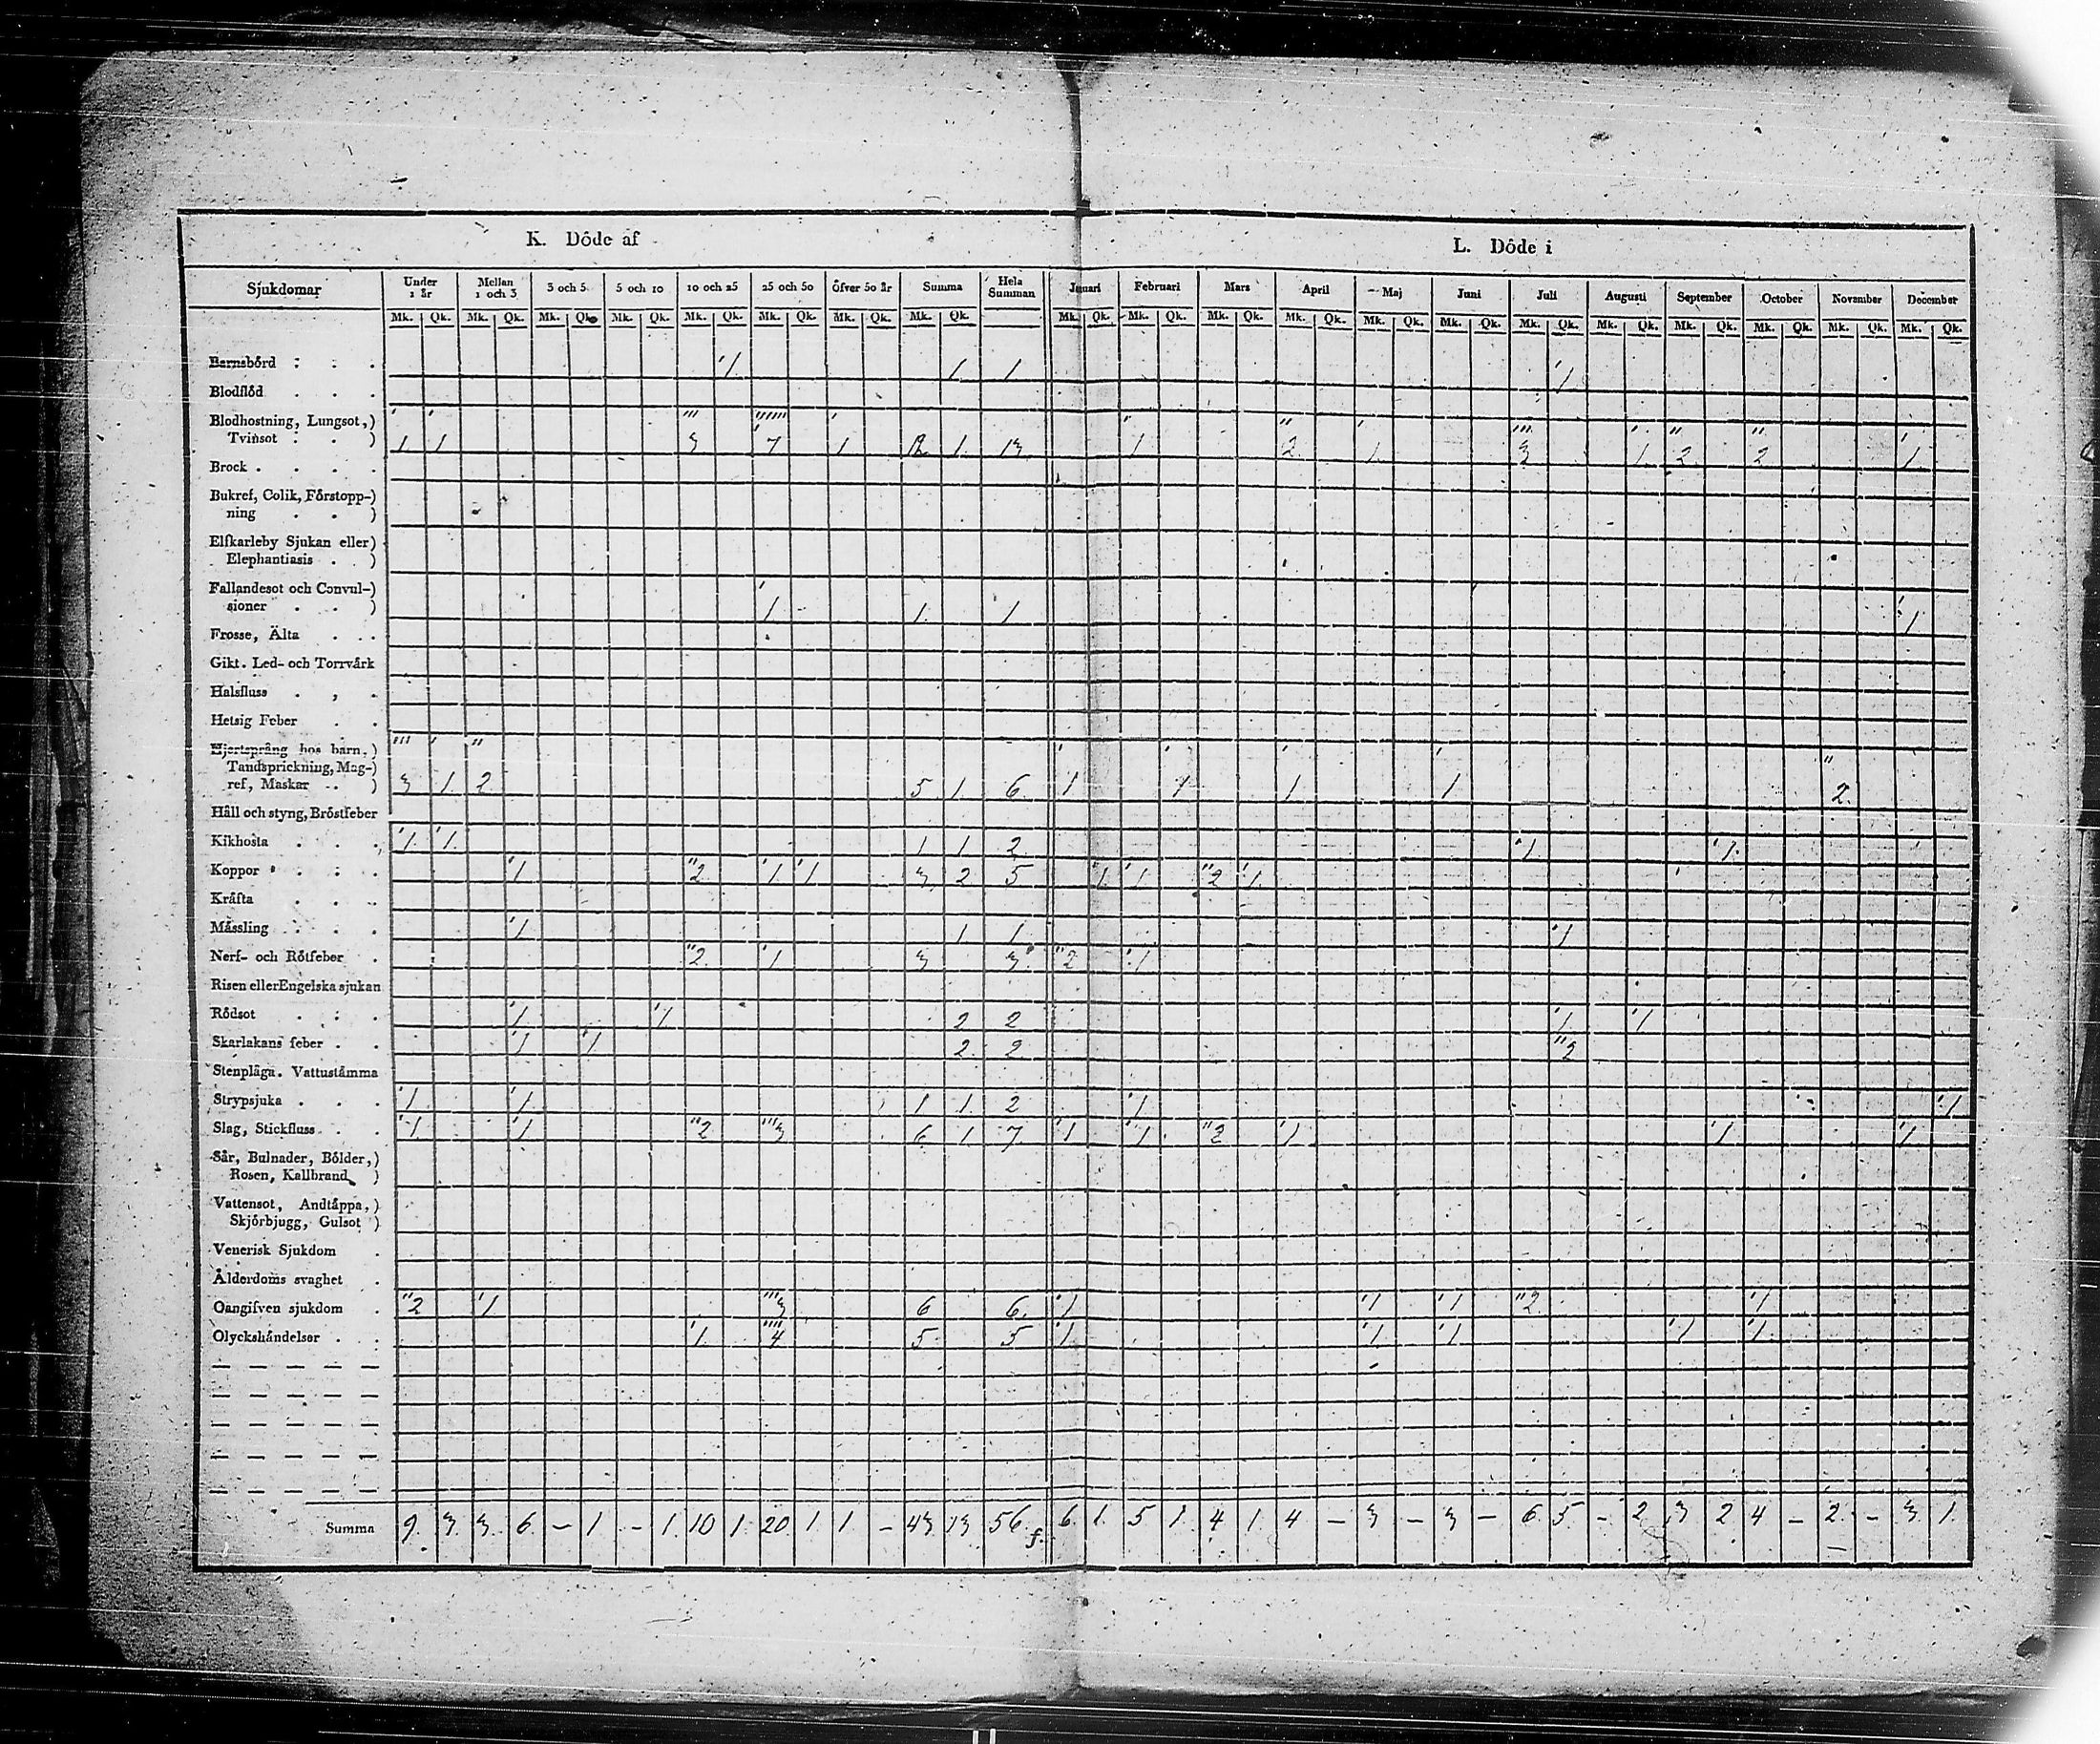 K. Döde af L. Döde i
Sjukdomar Under 1 år Mellan 1 och 3 3 och 5 5 och 10 10 och 25 25 och 50 Öfver 50 år Summa Hela Summan Januari Februari Mars April Maj Juni Juli Augusti September October November December
Mk. Qk. Mk. Qk. Mk. Qk. Mk. Qk. Mk. Qk. Mk. Qk. Mk. Qk. Mk. Qk. Mk. Qk. Mk. Qk. Mk. Qk. Mk. Qk. Mk. Qk. Mk. Qk. Mk. Qk. Mk. Qk. Mk. Qk. Mk. Qk. Mk. Qk. Mk. Qk.
Barnsbörd 1 1 1 1
Blodflöd
Blodhostning, Lungsot,)
Tvinsot ) 1 1 3 7 1 12 1 13 1 2 1 3 1 2 2 1
Brock
Bukref, Colik, Förstopp-)
ning )
Elfkarleby Sjukan eller)
Elephantiasis )
Fallandesot och Convul-)
sioner ) 1 1 1 1
Frosse, Älta
Gikt. Led- och Torrvärk
Halsfluss
Hetsig Feber
Hjertsprång hos barn,)
Tandsprickning, Mag-)
ref, Maskar ) 3 1 2 5 1 6 1 1 1 1 2
Håll och styng, Bröstfeber
Kikhosta 1 1 1 1 2 1 1
Koppor 1 2 1 1 3 2 5 1 1 2 1
Kräfta
Mässling 1 1 1 1
Nerf- och Rötfeber 2 1 3 3 2 1
Risen eller Engelska sjukan
Rödsot 1 1 2 2 1 1
Skarlakans feber 1 1 2 2 2
Stenplåga. Vattustämma
Strypsjuka 1 1 1 1 2 1 1
Slag, Stickfluss 1 1 2 3 6 1 7 1 1 2 1 1 1
Sår, Bulnader, Bölder,)
Rosen, Kallbrand )
Vattensot, Andtäppa,)
Skjörbjugg, Gulsot )
Venerisk Sjukdom
Ålderdoms svaghet
Oangifven sjukdom 2 1 3 6 6 1 1 1 2 1
Olyckshändelser 1 4 5 5 1 1 1 1 1
Summa 9 3 3 6 - 1 - 1 10 1 20 1 1 - 43 13 56 6 1 5 1 4 1 4 - 3 - 3 - 6 5 - 2 3 2 4 - 2 - 3 1